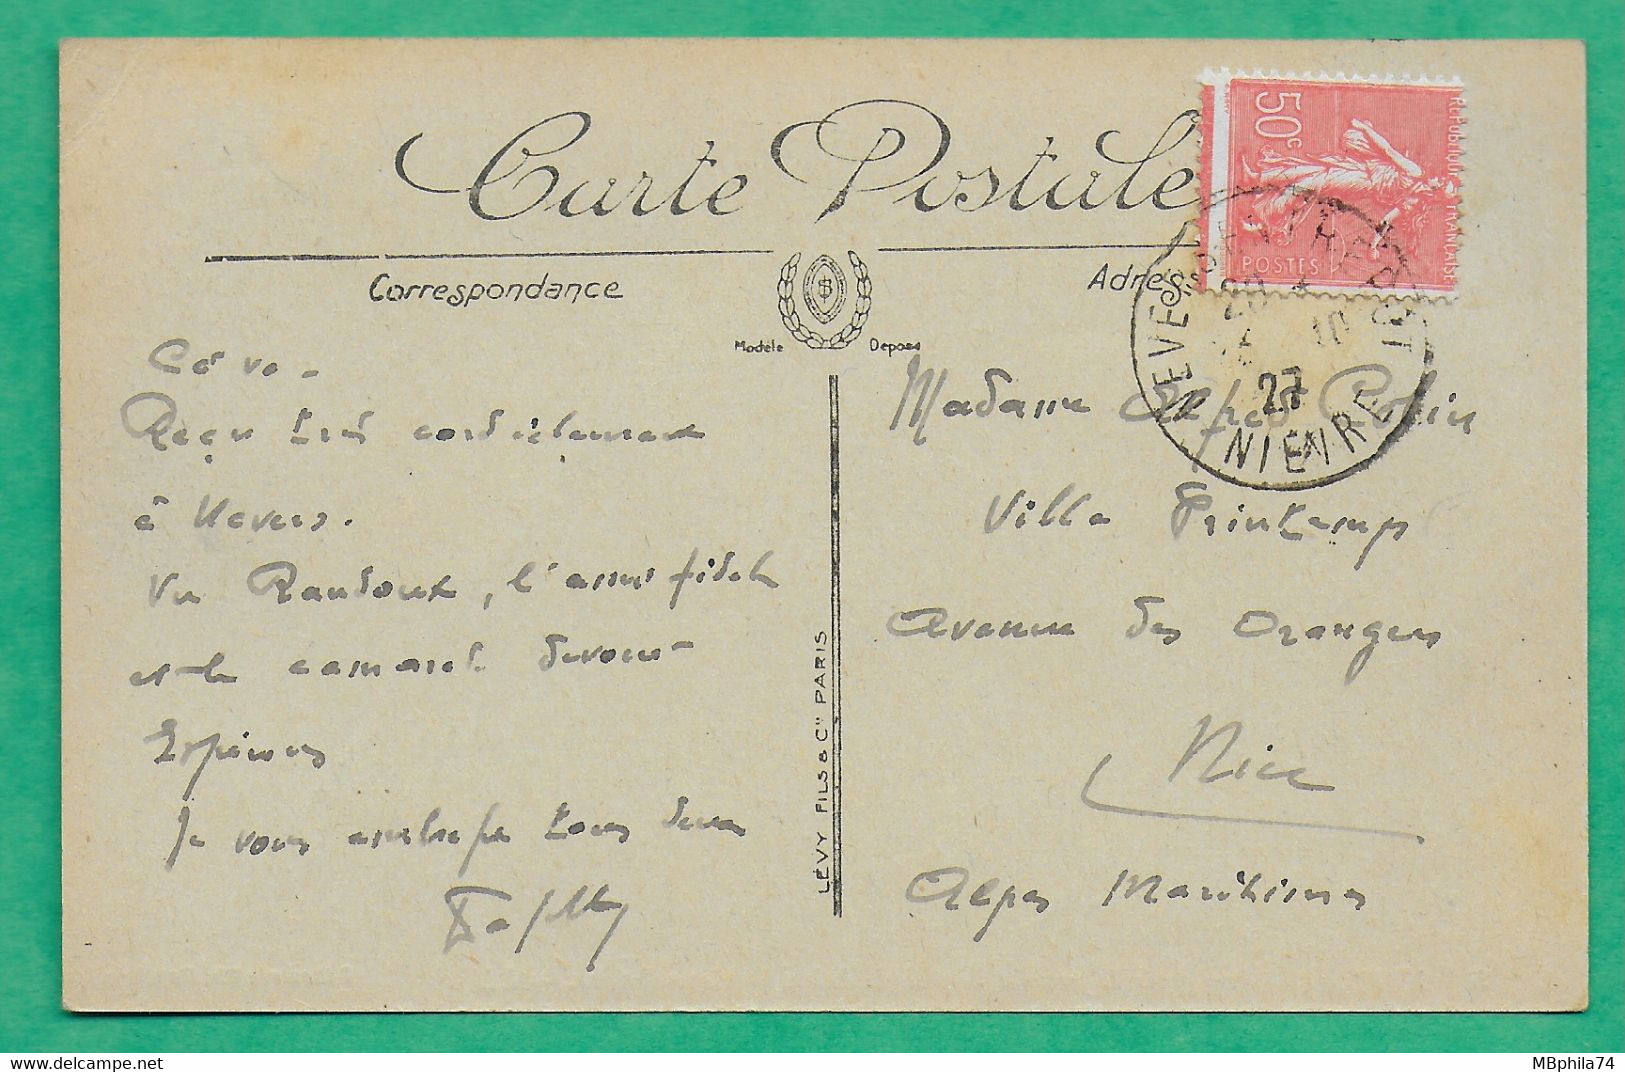 Carte Postale
Correspondance
Adresse
Modèle Déposé
50c
REPUBLIQUE FRANÇAISE
POSTES
27
NIEVRE
Ça va -
Reçu très cordialement
à Nevers.
Vu Randoux, l'ami fidèle
et le camarade dévoué
Je vous embrasse tous deux
Madame Alfred Robin
Villa Printemps
Avenue des Orangers
Nice
Alpes Maritimes
LÉVY FILS & Cie PARIS
MBphila74
delcampe.net